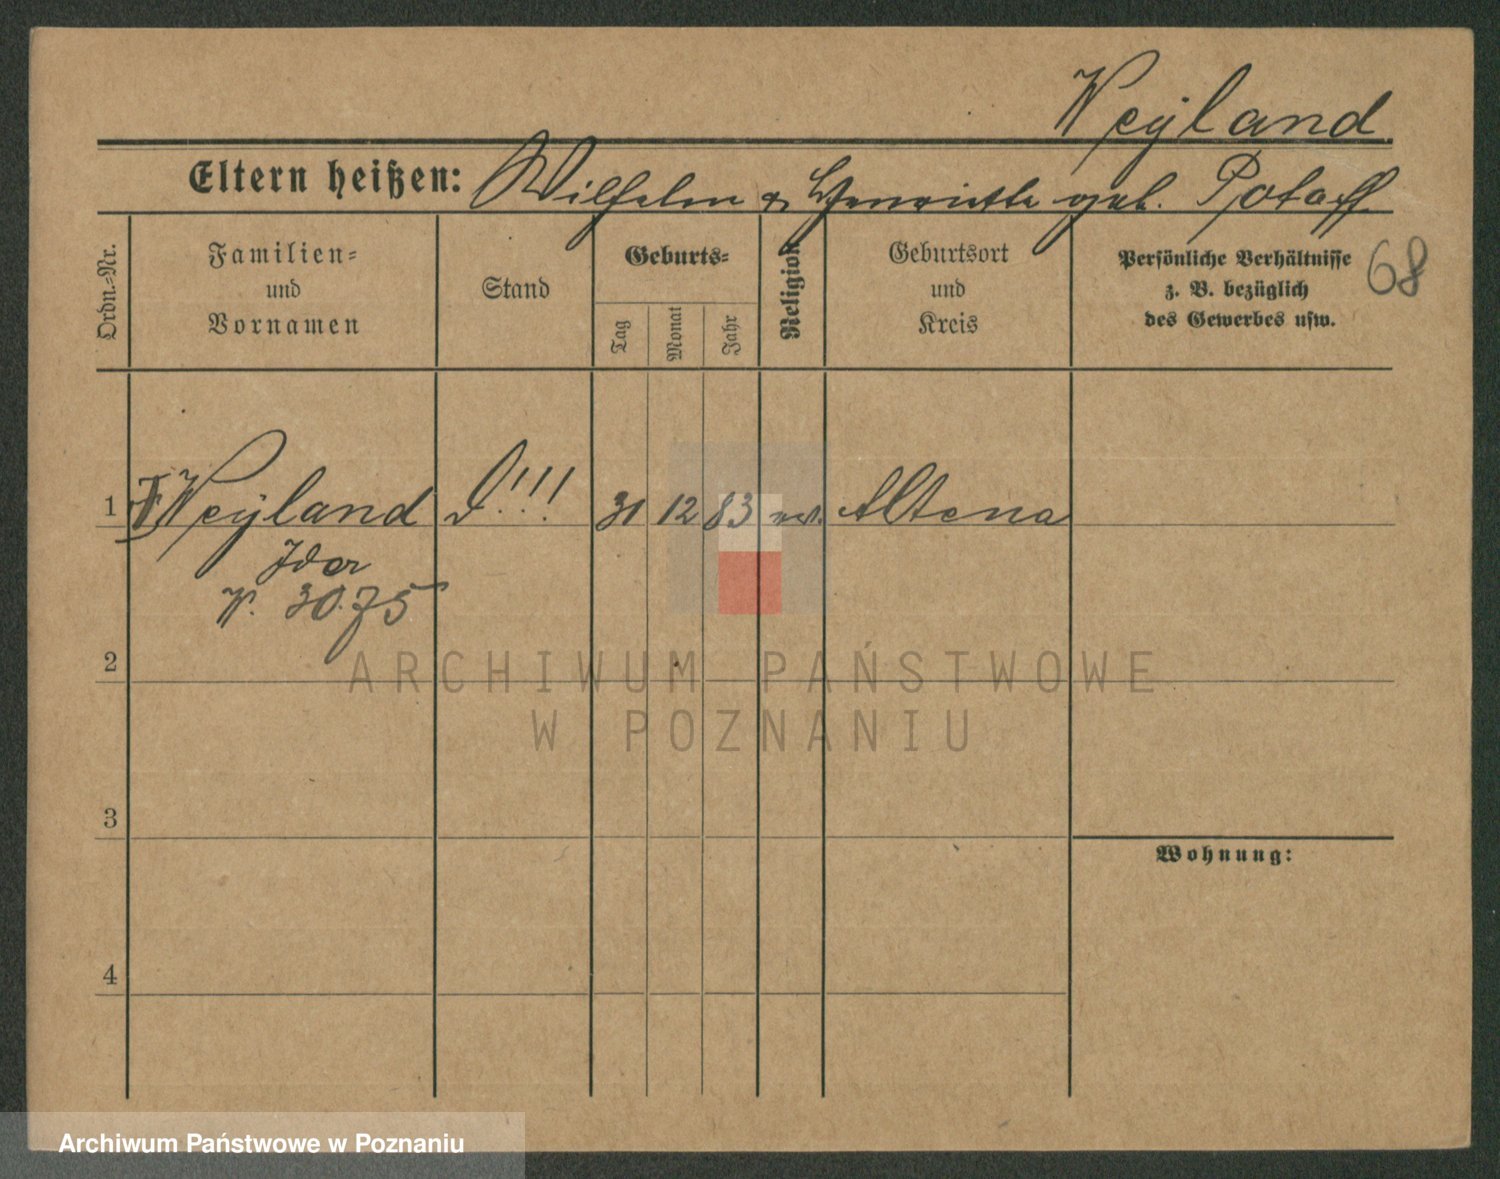 Weyland
Eltern heißen: Wilhelm & Henriette geb. Potaff
Ordn.-Nr.
Familien-
und
Vornamen
Stand
Geburts-
Tag
Monat
Jahr
Religion
Geburtsort
und
Kreis
Persönliche Verhältnisse
z. B. bezüglich
des Gewerbes usw.
68
1 Weyland 31 12 83 ev. Altena
Ida
30.75
2
3
4
Wohnung:
ARCHIWUM PAŃSTWOWE
W POZNANIU
Archiwum Państwowe w Poznaniu